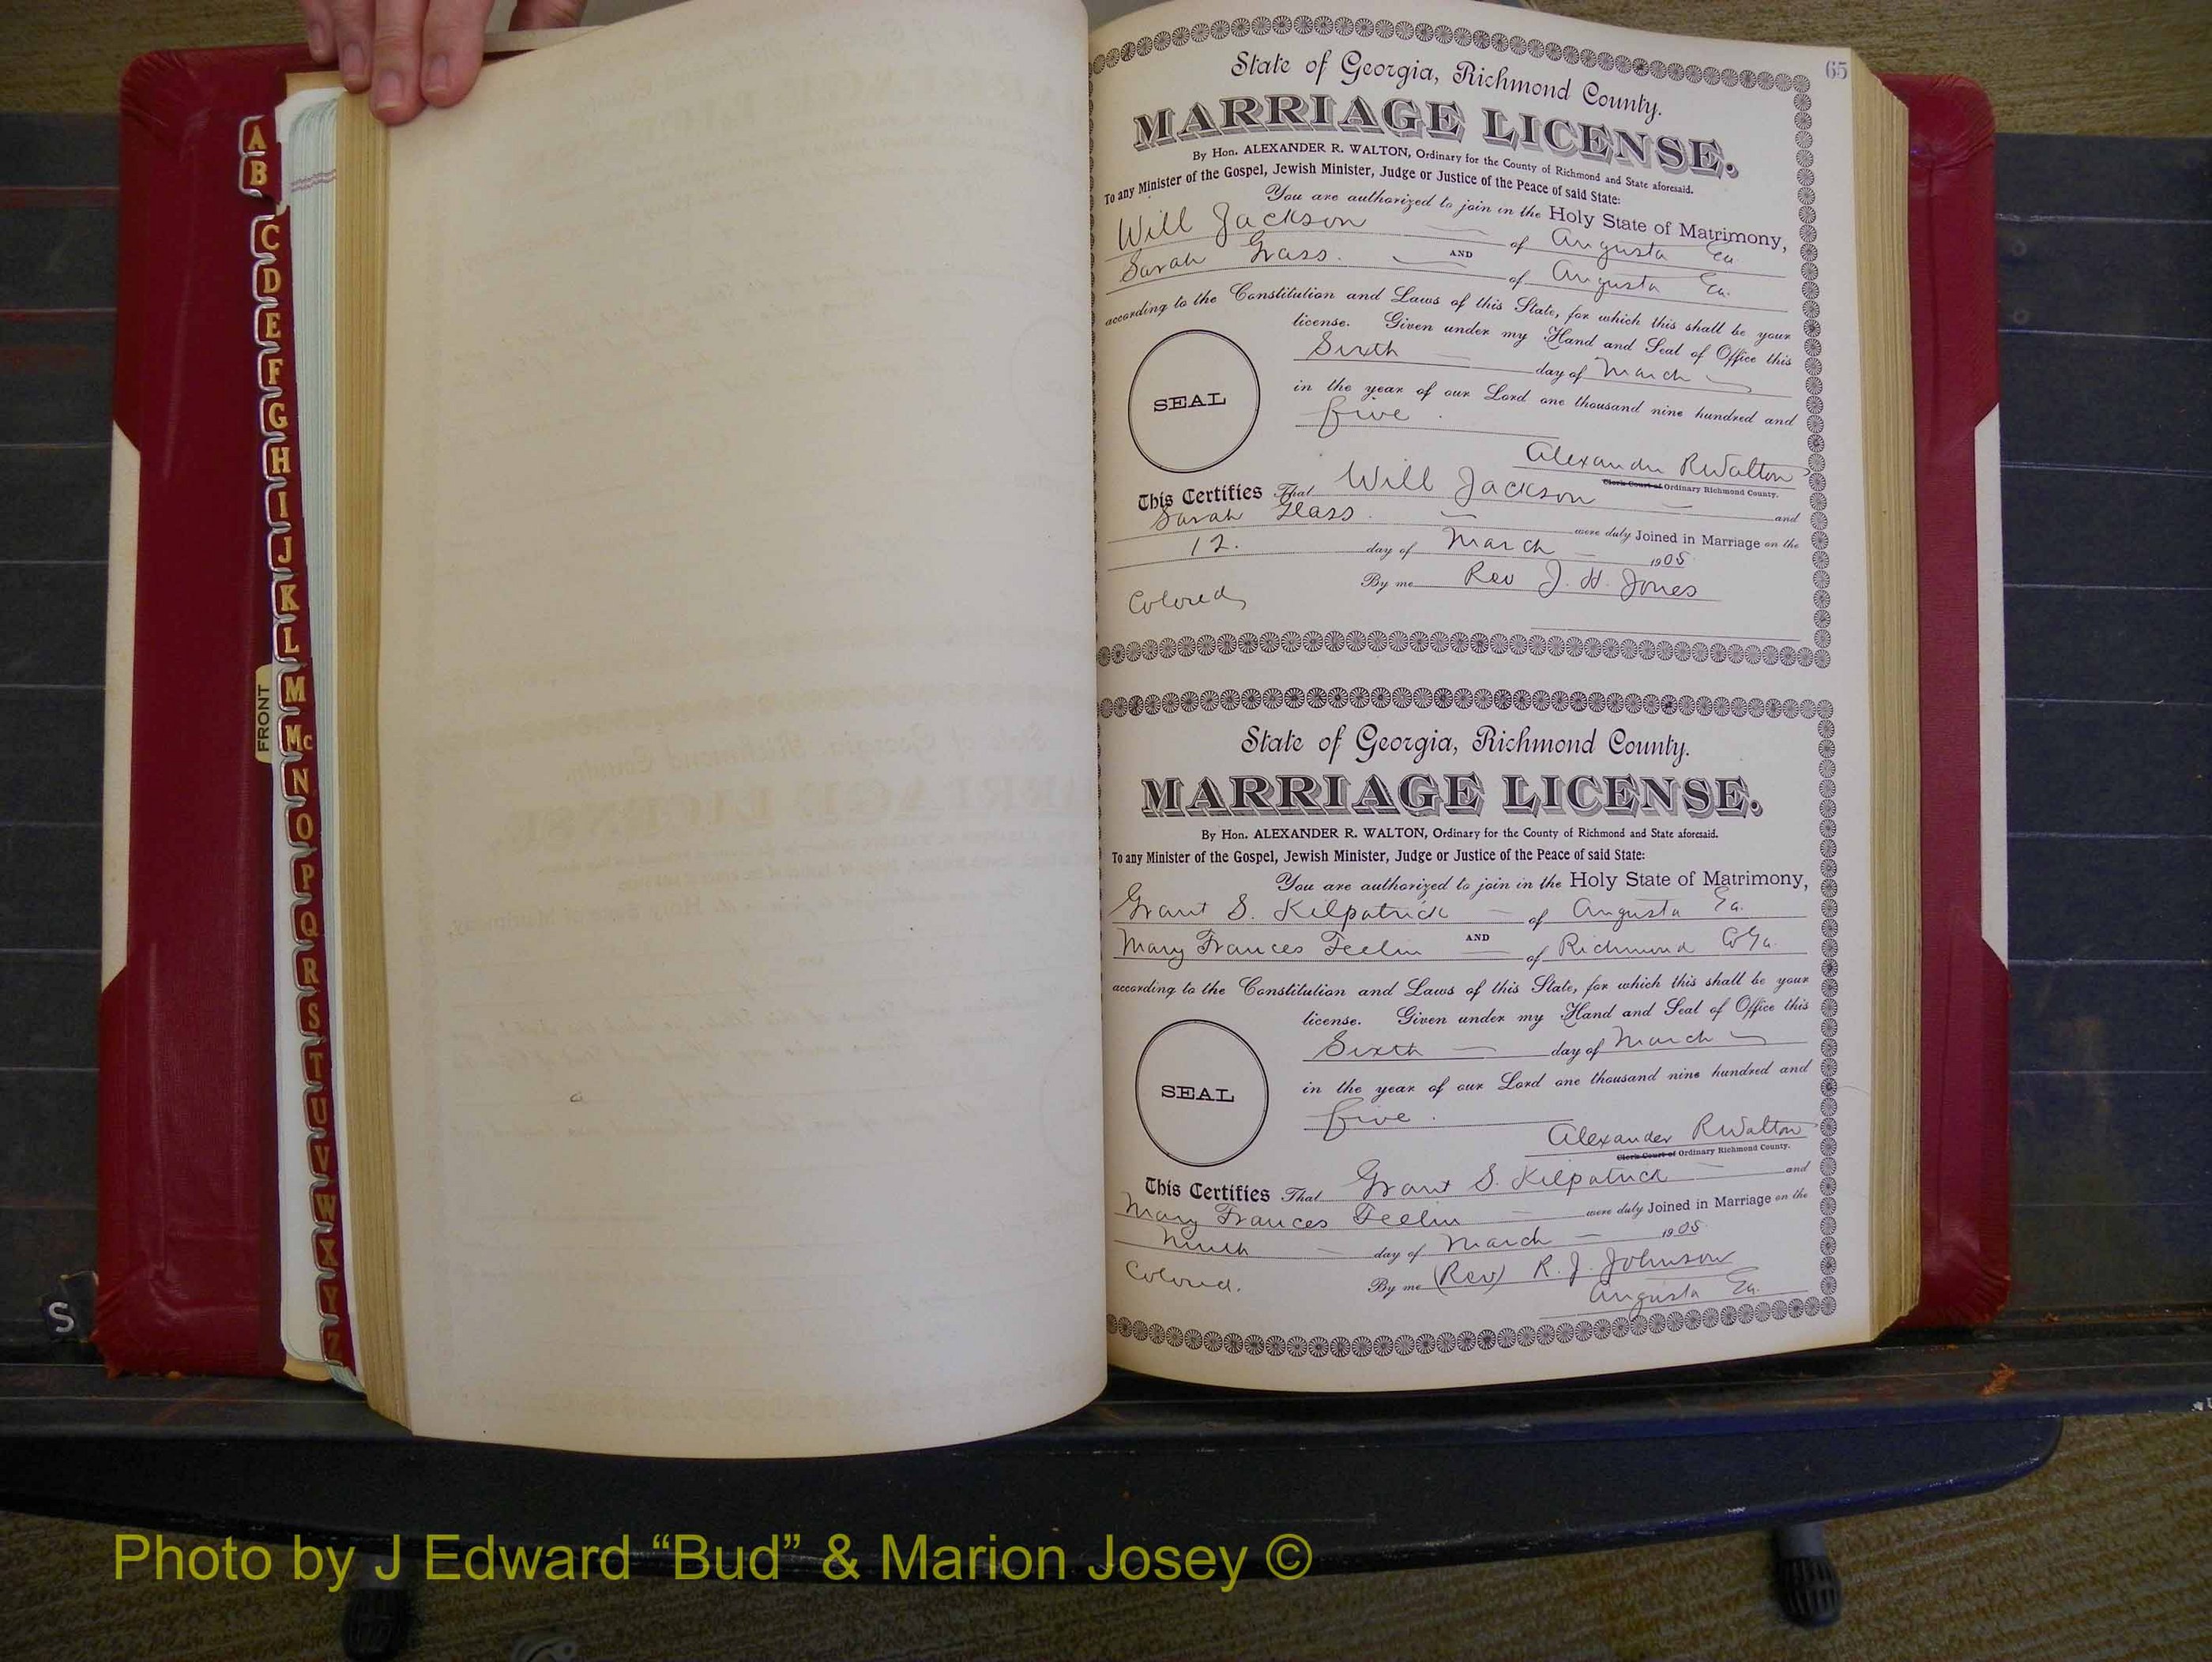 65
State of Georgia, Richmond County.
MARRIAGE LICENSE.
By Hon. ALEXANDER R. WALTON, Ordinary for the County of Richmond and State aforesaid.
To any Minister of the Gospel, Jewish Minister, Judge or Justice of the Peace of said State:
You are authorized to join in the Holy State of Matrimony,
Will Jackson of Augusta Ga.
AND
Sarah Grass. of Augusta Ga.
according to the Constitution and Laws of this State, for which this shall be your
license. Given under my Hand and Seal of Office this
Sixth day of March
in the year of our Lord one thousand nine hundred and
five.
SEAL
Alexander R Walton
Clerk Court of Ordinary Richmond County.
This Certifies That Will Jackson and
Sarah Glass. were duly Joined in Marriage on the
12. day of March 1905
By me Rev J. H. Jones
Colored
State of Georgia, Richmond County.
MARRIAGE LICENSE.
By Hon. ALEXANDER R. WALTON, Ordinary for the County of Richmond and State aforesaid.
To any Minister of the Gospel, Jewish Minister, Judge or Justice of the Peace of said State:
You are authorized to join in the Holy State of Matrimony,
Grant S. Kilpatrick of Augusta Ga.
AND
Mary Frances of Richmond Co Ga.
according to the Constitution and Laws of this State, for which this shall be your
license. Given under my Hand and Seal of Office this
Sixth day of March
in the year of our Lord one thousand nine hundred and
five.
SEAL
Alexander R Walton
Clerk Court of Ordinary Richmond County.
This Certifies That Grant S. Kilpatrick and
Mary Frances were duly Joined in Marriage on the
Ninth day of March 1905
Colored. By me (Rev) R. J. Johnson
Augusta Ga.
A
B
C
D
E
F
G
H
I
J
K
L
M
Mc
N
O
P
Q
R
S
T
U
V
W
X
Y
Z
FRONT
S
Photo by J Edward “Bud” & Marion Josey ©